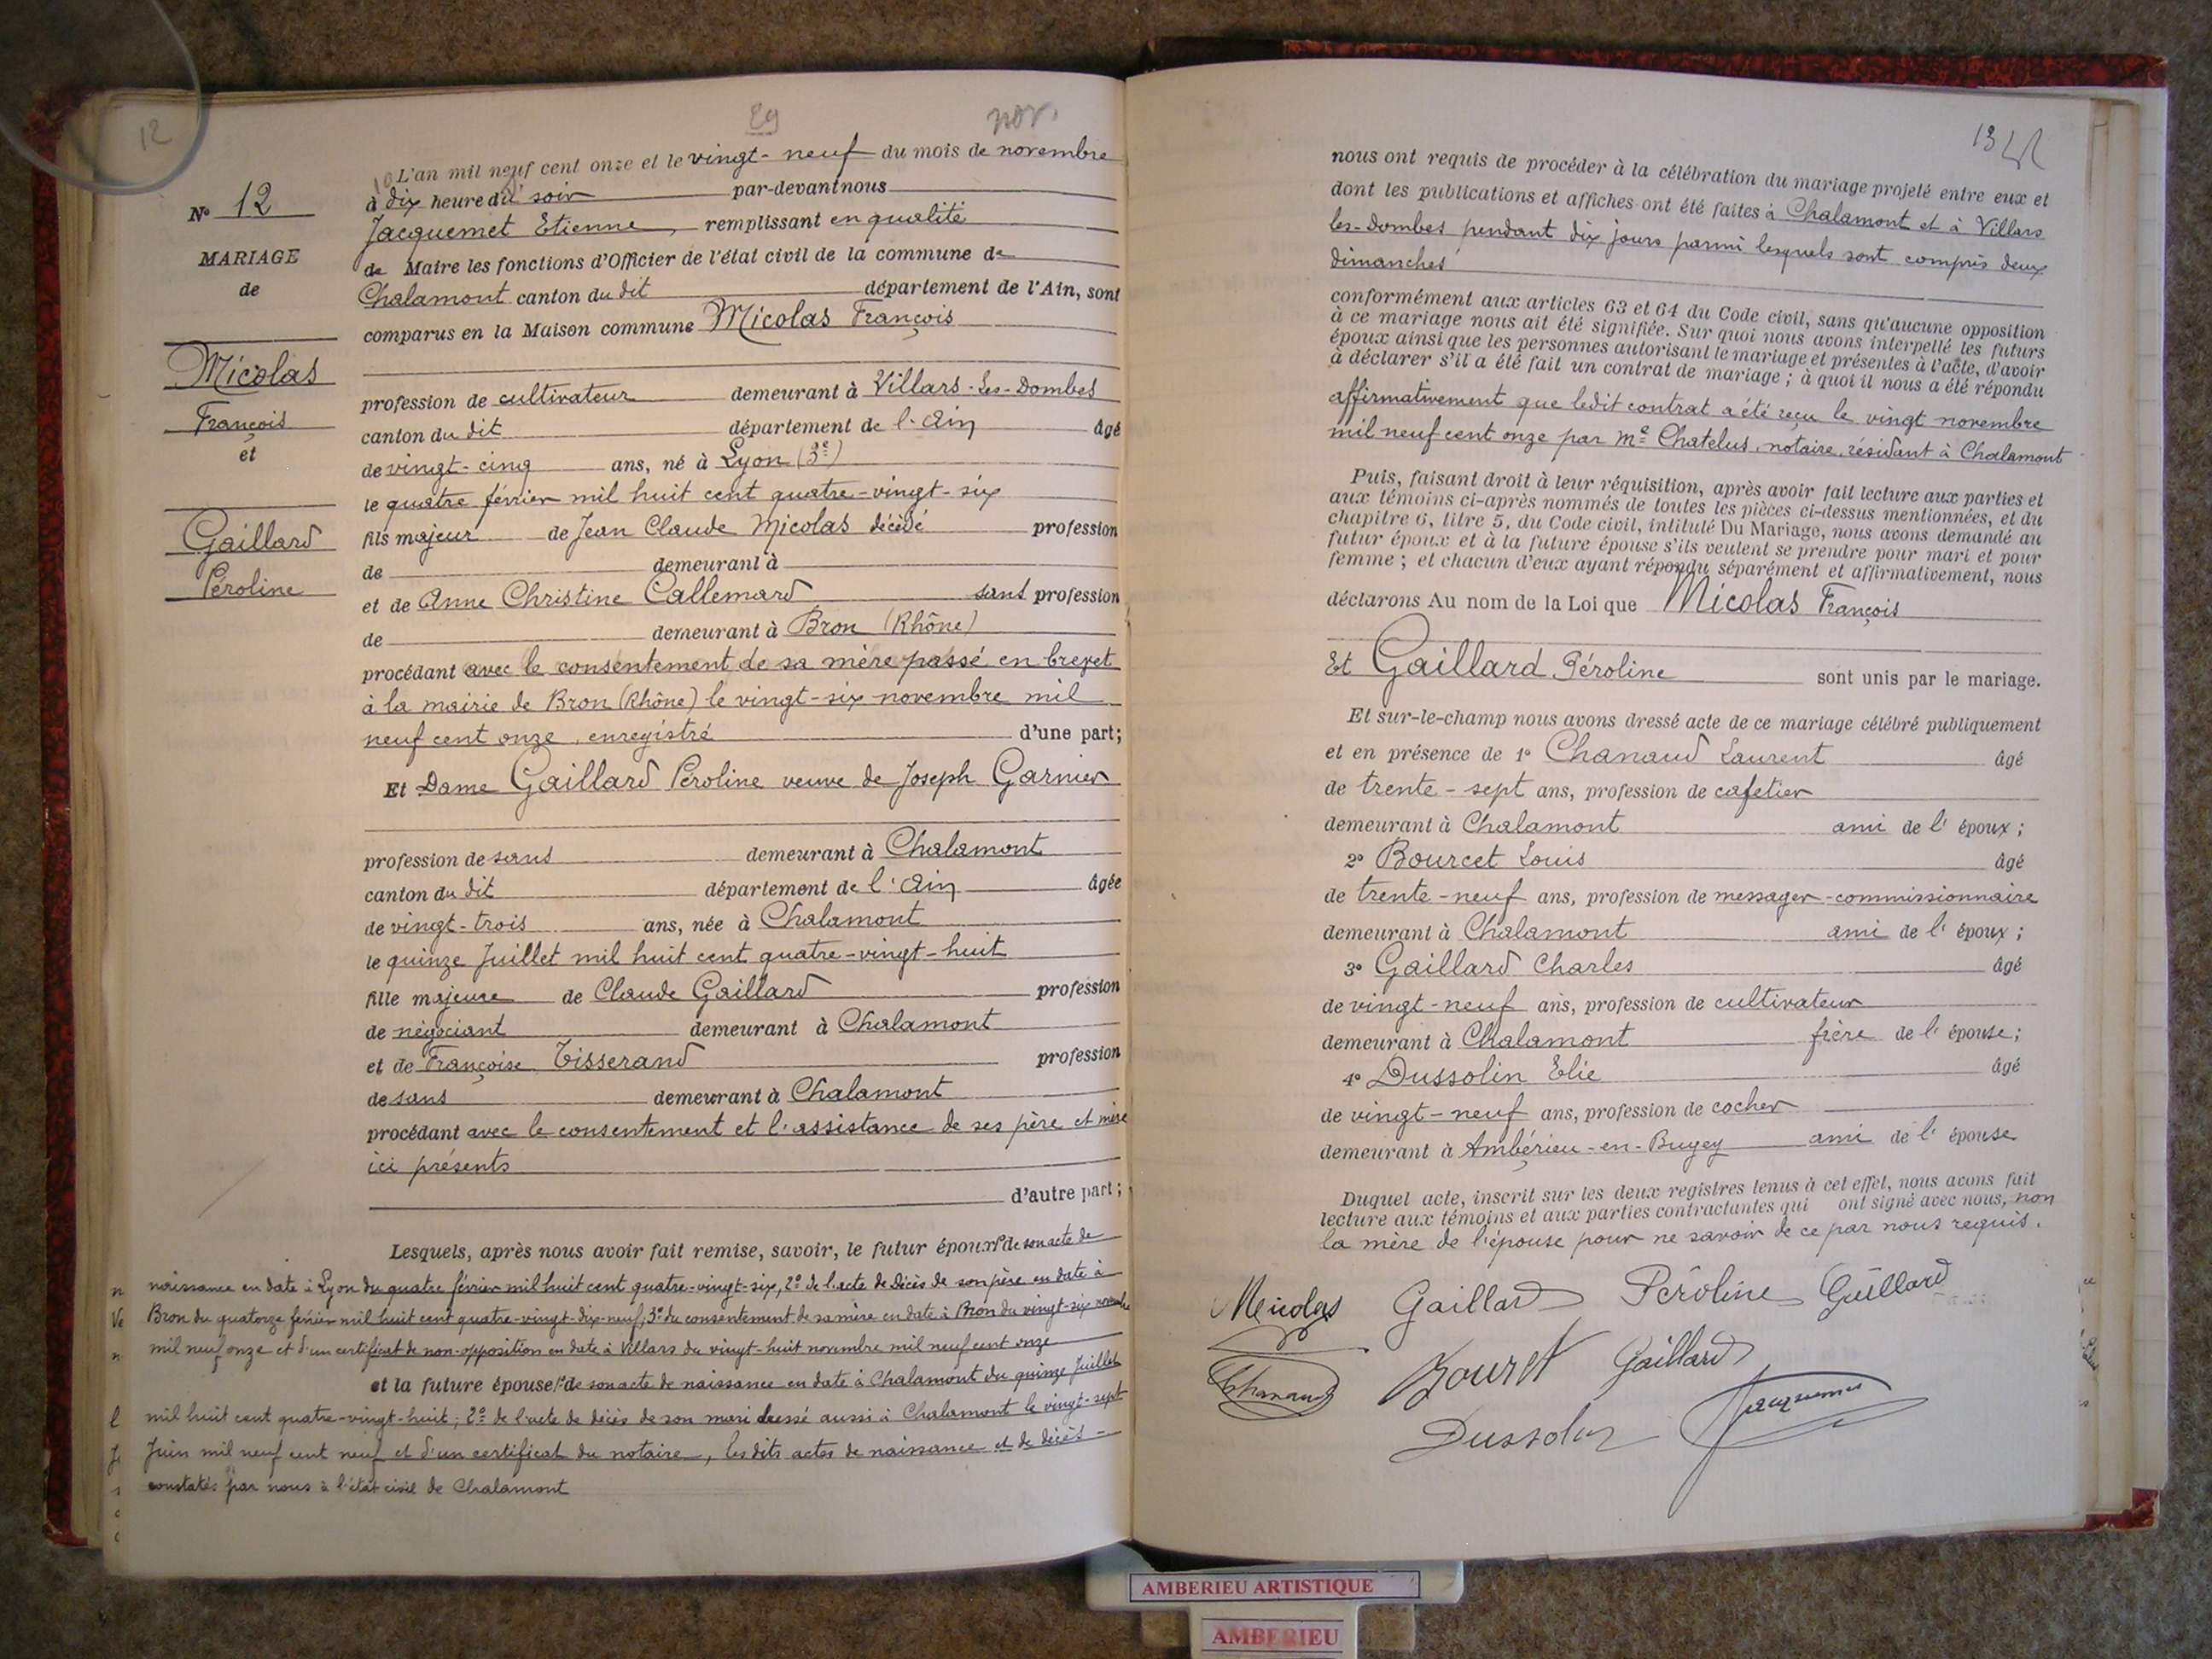 12
29 nov.
L'an mil neuf cent onze et le vingt-neuf du mois de novembre
à dix heure du soir par-devant nous
N° 12
Jacquemet Etienne, remplissant en qualité
MARIAGE
de Maire les fonctions d'Officier de l'état civil de la commune de
de
Chalamont canton du dit département de l'Ain, sont
comparus en la Maison commune Micolas François
Micolas
profession de cultivateur demeurant à Villars-les-Dombes
François
canton du dit département de l'Ain âgé
et
de vingt-cinq ans, né à Lyon (3e)
le quatre février mil huit cent quatre-vingt-six
Gaillard
fils majeur de Jean Claude Micolas décédé profession
de demeurant à
Péroline
et de Anne Christine Callemard sans profession
de demeurant à Bron (Rhône)
procédant avec le consentement de sa mère passé en brevet
à la mairie de Bron (Rhône) le vingt-six novembre mil
neuf cent onze, enregistré d'une part;
Et Dame Gaillard Péroline veuve de Joseph Garnier
profession de sans demeurant à Chalamont
canton du dit département de l'Ain âgée
de vingt-trois ans, née à Chalamont
le quinze Juillet mil huit cent quatre-vingt-huit
fille majeure de Claude Gaillard profession
de négociant demeurant à Chalamont
et de Françoise Tisserand profession
de sans demeurant à Chalamont
procédant avec le consentement et l'assistance de ses père et mère
ici présents
d'autre part;
Lesquels, après nous avoir fait remise, savoir, le futur époux 1° de son acte de
naissance en date à Lyon du quatre février mil huit cent quatre-vingt-six, 2° de l'acte de décès de son père en date à
Bron du quatorze février mil huit cent quatre-vingt-dix-neuf, 3° du consentement de sa mère en date à Bron du vingt-six novembre
mil neuf onze et d'un certificat de non-opposition en date à Villars du vingt-huit novembre mil neuf cent onze
et la future épouse 1° de son acte de naissance en date à Chalamont du quinze Juillet
mil huit cent quatre-vingt-huit; 2° de l'acte de décès de son mari dressé aussi à Chalamont le vingt-sept
Juin mil neuf cent neuf et d'un certificat du notaire, les dits actes de naissance et de décès
constatés par nous à l'état civil de Chalamont
13
nous ont requis de procéder à la célébration du mariage projeté entre eux et
dont les publications et affiches ont été faites à Chalamont et à Villars
les-Dombes pendant dix jours parmi lesquels sont compris deux
dimanches
conformément aux articles 63 et 64 du Code civil, sans qu'aucune opposition
à ce mariage nous ait été signifiée. Sur quoi nous avons interpellé les futurs
époux ainsi que les personnes autorisant le mariage et présentes à l'acte, d'avoir
à déclarer s'il a été fait un contrat de mariage; à quoi il nous a été répondu
affirmativement que ledit contrat a été reçu le vingt novembre
mil neuf cent onze par Me Chatelus, notaire, résidant à Chalamont
Puis, faisant droit à leur réquisition, après avoir fait lecture aux parties et
aux témoins ci-après nommés de toutes les pièces ci-dessus mentionnées, et du
chapitre 6, titre 5, du Code civil, intitulé Du Mariage, nous avons demandé au
futur époux et à la future épouse s'ils veulent se prendre pour mari et pour
femme; et chacun d'eux ayant répondu séparément et affirmativement, nous
déclarons Au nom de la Loi que Micolas François
Et Gaillard Péroline sont unis par le mariage.
Et sur-le-champ nous avons dressé acte de ce mariage célébré publiquement
et en présence de 1° Chanaud Laurent âgé
de trente-sept ans, profession de cafetier
demeurant à Chalamont ami de l'époux;
2° Bourcet Louis âgé
de trente-neuf ans, profession de messager-commissionnaire
demeurant à Chalamont ami de l'époux;
3° Gaillard Charles âgé
de vingt-neuf ans, profession de cultivateur
demeurant à Chalamont frère de l'épouse;
4° Dussolin Elie âgé
de vingt-neuf ans, profession de cocher
demeurant à Ambérieu-en-Bugey ami de l'épouse
Duquel acte, inscrit sur les deux registres tenus à cet effet, nous avons fait
lecture aux témoins et aux parties contractantes qui ont signé avec nous, non
la mère de l'épouse pour ne savoir de ce par nous requis.
Micolas Gaillard Péroline Gaillard
Chanaud Bourcet Gaillard
Dussolin Jacquemet
AMBERIEU ARTISTIQUE
AMBERIEU